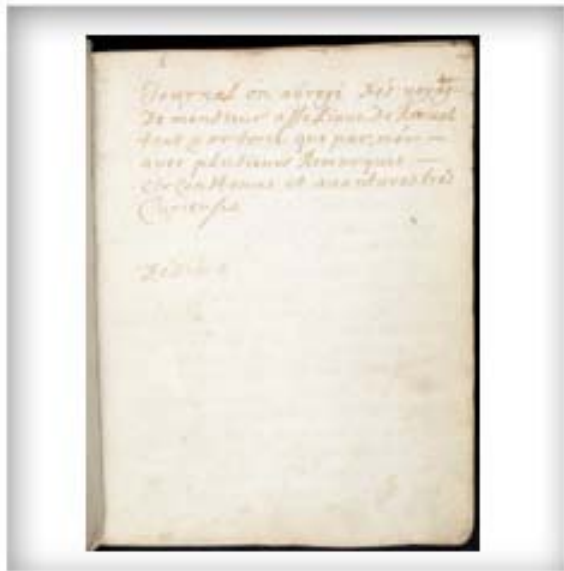 Journal en abregé des voyages
de monsieur assseline de Ronual
tant par terre que par mer —
avec plusieurs Remarques —
circonstances et avantures tres
Curieuses